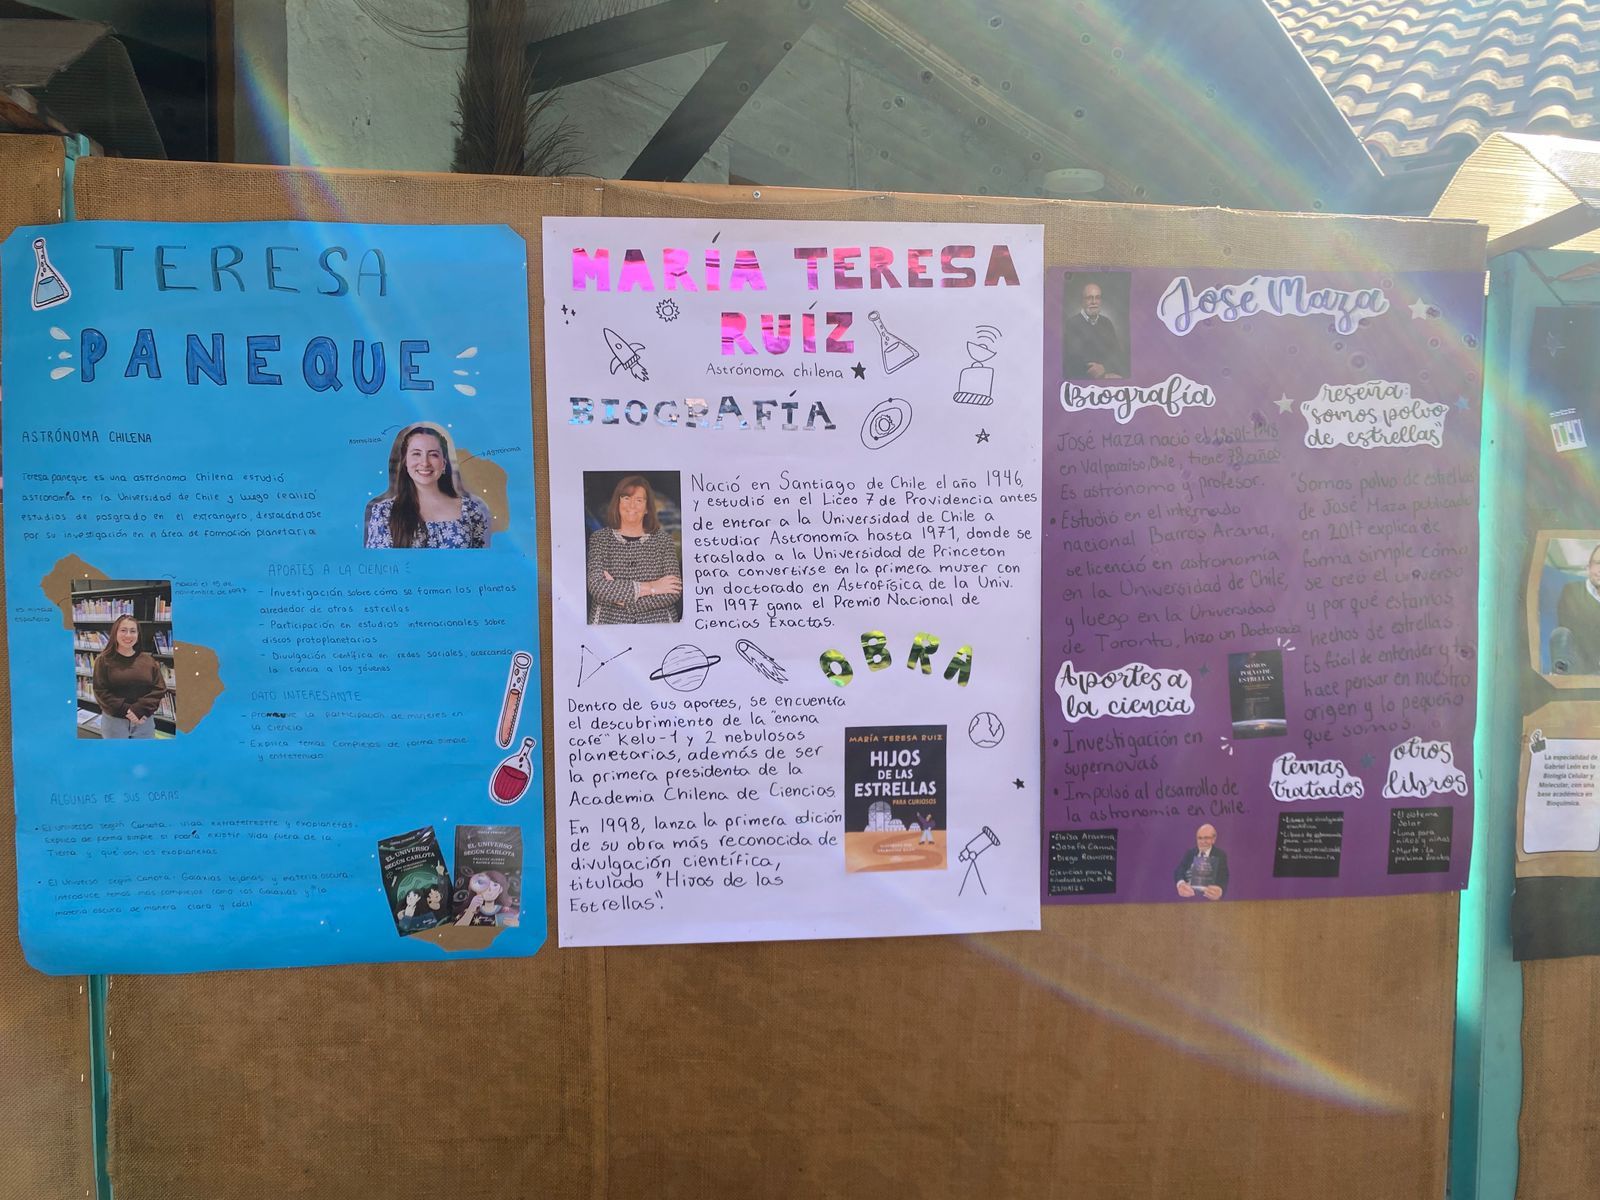 TERESA
PANEQUE
ASTRÓNOMA CHILENA
Astrofísica
Astronoma
Teresa paneque es una astrónoma Chilena estudió
astronomía en la Universidad de Chile y luego realizó
estudios de posgrado en el extranjero, destacándose
por su investigación en n área de formación planetaria
nació el 15 de
noviembre de 1997
española
APORTES A LA CIENCIA:
- Investigación sobre cómo se forman los planetas
alrededor de otras estrellas
- Participación en estudios internacionales sobre
discos protoplanetarios
- Divulgación científica en redes sociales, acercando
la ciencia a los jóvenes
DATO INTERESANTE
- promueve la participación de mujeres en
la ciencia
- Explica temas complejos de forma simple
y entretenida
ALGUNAS DE SUS OBRAS
• El Universo según Carlota: Vida extraterrestre y exoplanetas.
Explica de forma simple si podría existir vida fuera de la
Tierra y qué son los exoplanetas
• El Universo según Carlota: Galaxias lejanas y materia oscura.
Introduce temas más complejos como las Galaxias y la
materia oscura de manera clara y fácil
EL UNIVERSO
SEGÚN CARLOTA
EL UNIVERSO
SEGÚN CARLOTA
MARÍA TERESA
RUÍZ
Astrónoma chilena
BIOGRAFÍA
Nació en Santiago de Chile el año 1946,
y estudió en el Liceo 7 de Providencia antes
de entrar a la Universidad de Chile a
estudiar Astronomía hasta 1971, donde se
traslada a la Universidad de Princeton
para convertirse en la primera mujer con
un doctorado en Astrofísica de la Univ.
En 1997 gana el Premio Nacional de
Ciencias Exactas.
OBRA
Dentro de sus aportes, se encuentra
el descubrimiento de la "enana
café" Kelu-1 y 2 nebulosas
planetarias, además de ser
la primera presidenta de la
Academia Chilena de Ciencias
En 1998, lanza la primera edición
de su obra más reconocida de
divulgación científica,
titulado "Hijos de las
Estrellas".
MARÍA TERESA RUIZ
HIJOS
DE LAS
ESTRELLAS
PARA CURIOSOS
José Maza
Biografía
José Maza nació el
en Valparaíso, Chile, tiene 78 años.
Es astrónomo y profesor.
• Estudió en el internado
nacional Barros Arana,
se licenció en astronomía
en la Universidad de Chile,
y luego en la Universidad
de Toronto, hizo un Doctorado
Aportes a
la ciencia
• Investigación en
supernovas
• Impulsó al desarrollo de
la astronomía en Chile.
reseña:
"somos polvo
de estrellas"
"Somos polvo de estrellas
de José Maza publicado
en 2017 explica de
forma simple cómo
se creó el universo
y por qué estamos
hechos de estrellas.
Es fácil de entender y te
hace pensar en nuestro
origen y lo pequeño
que somos.
SOMOS
POLVO DE
ESTRELLAS
temas
tratados
otros
libros
• Eloísa Aravena
• Josefa Canna
• Diego Ramírez.
Ciencias para la
ciudadanía
• Libros de divulgación
científica
• Libros de astronomía
para niños
• Temas especializados
de astronomía
• El sistema
solar
• Luna para
niños y niñas
• Marte: la
próxima frontera
La especialidad de
Gabriel León es la
Biología Celular y
Molecular, con una
base académica en
Bioquímica.